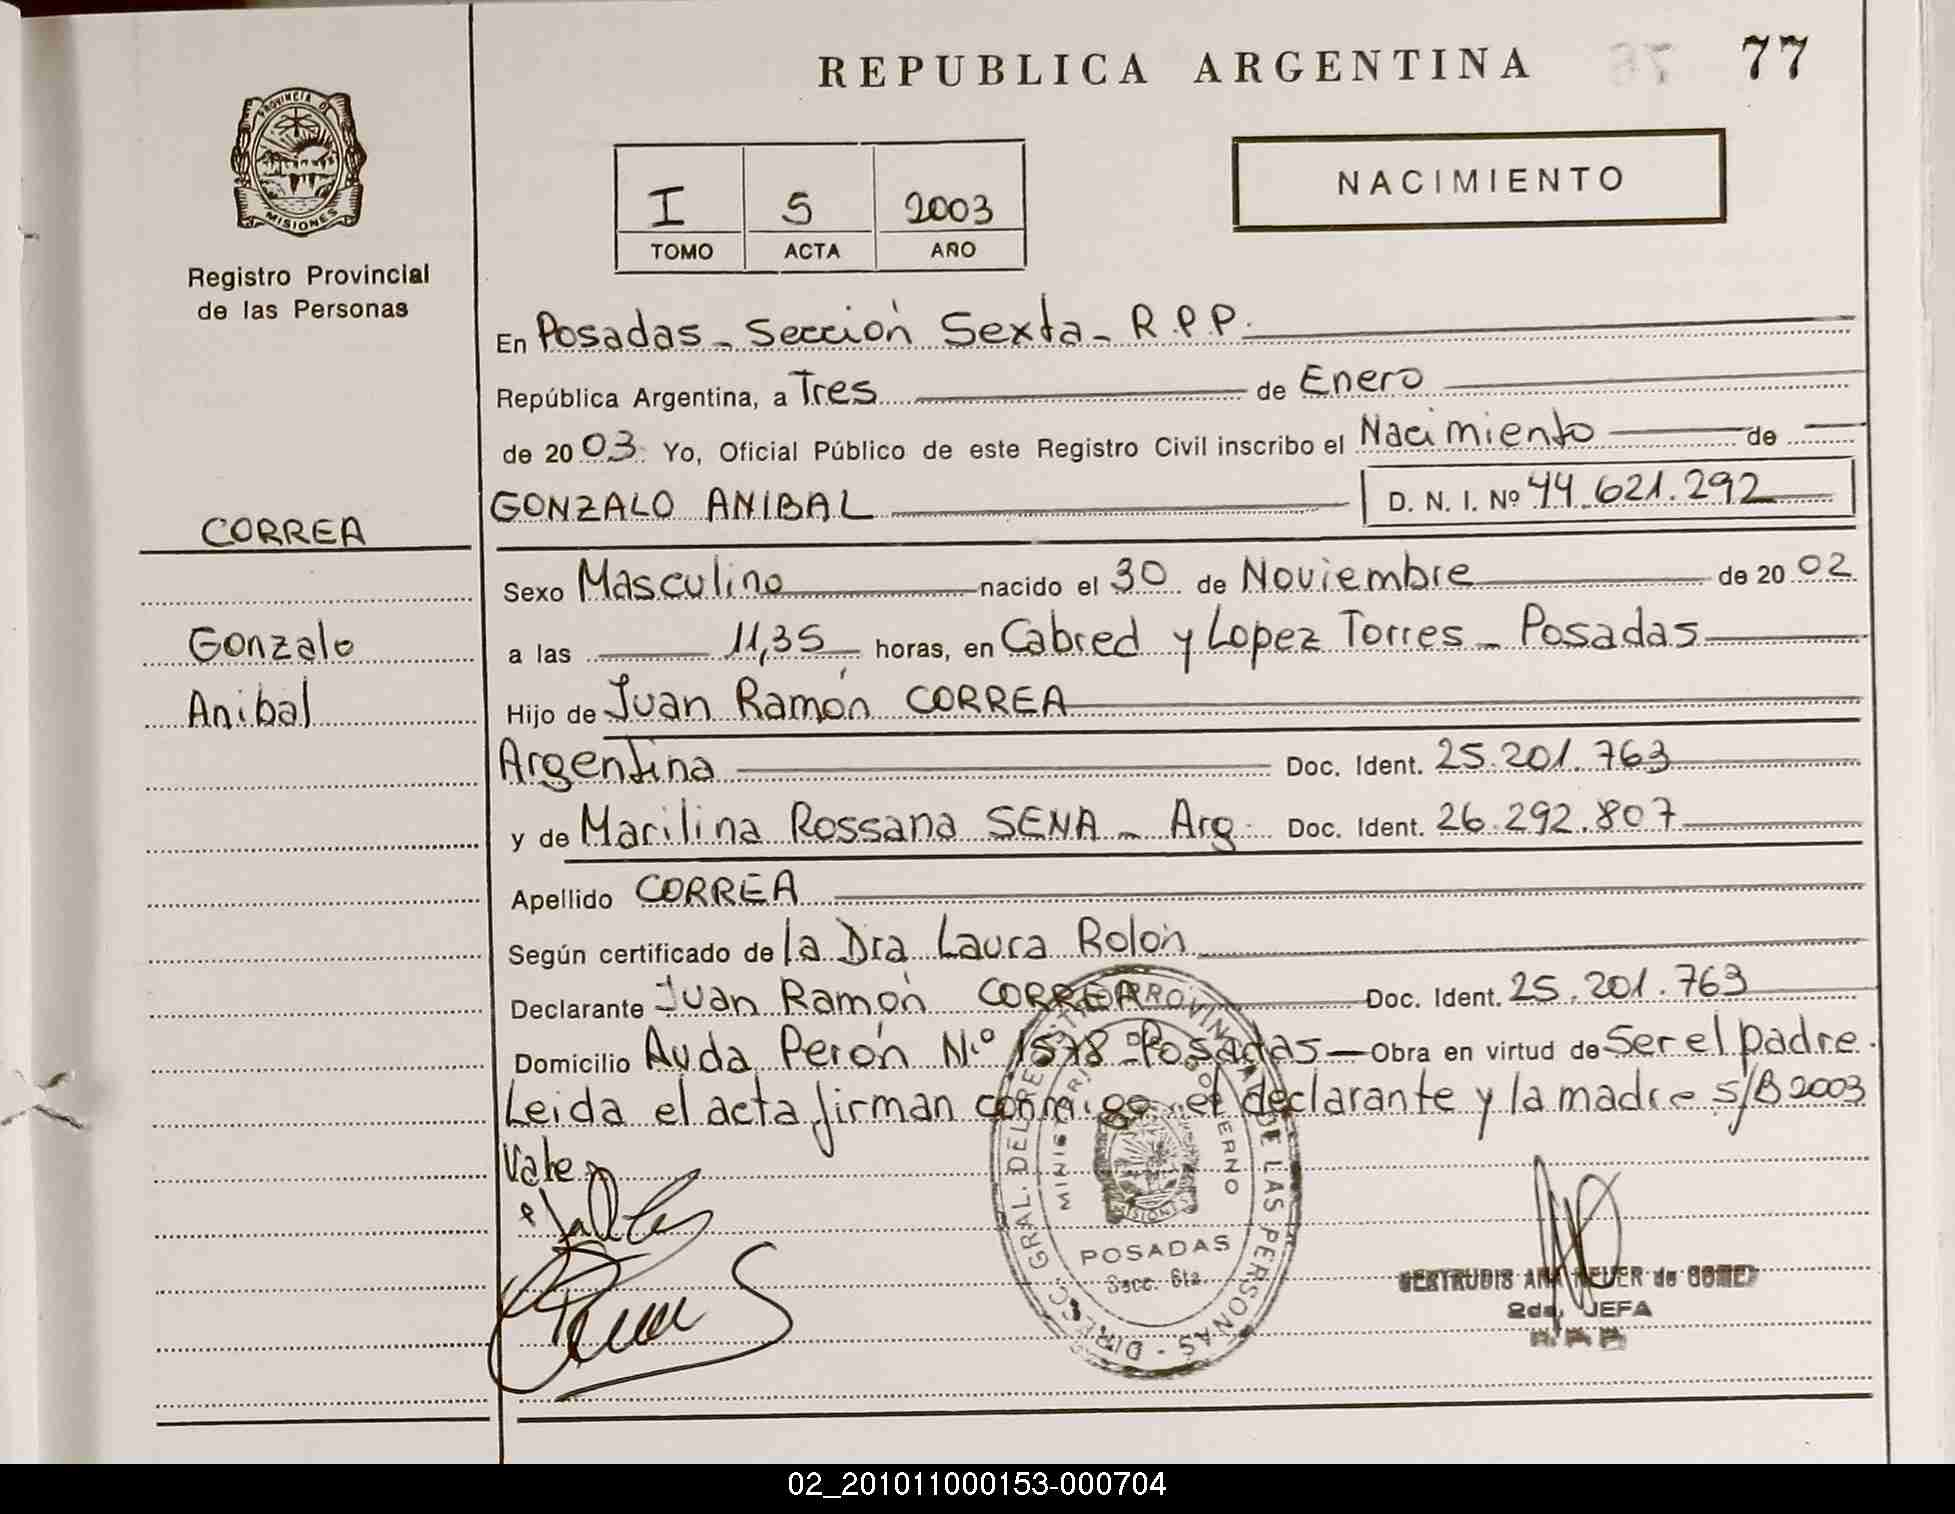 REPUBLICA ARGENTINA 77
PROVINCIA D
MISIONES
Registro Provincial
de las Personas
NACIMIENTO
I S 2003
TOMO ACTA AÑO
En Posadas - Sección Sexta - R.P.P.
República Argentina, a Tres de Enero
de 2003. Yo, Oficial Público de este Registro Civil inscribo el Nacimiento de
GONZALO ANIBAL D. N. I. Nº 44.621.292
CORREA
Gonzalo
Anibal
Sexo Masculino nacido el 30 de Noviembre de 2002
a las 11,35 horas, en Cabred y Lopez Torres - Posadas
Hijo de Juan Ramón CORREA
Argentina Doc. Ident. 25.201.763
y de Marilina Rossana SENA - Arg. Doc. Ident. 26.292.807
Apellido CORREA
Según certificado de la Dra Laura Rolón
Declarante Juan Ramón CORREA Doc. Ident. 25.201.763
Domicilio Avda Perón Nº 1578 - Posadas - Obra en virtud de Ser el padre.
Leida el acta firman conmigo el declarante y la madre S/B 2003
Vale
DIREC. GRAL. DEL REGISTRO PROVINCIAL DE LAS PERSONAS -
MINISTERIO DE GOBIERNO
MISIONES
POSADAS
Secc. 6ta.
GERTRUDIS ANA de
2da. JEFA
R.P.P.
02_201011000153-000704